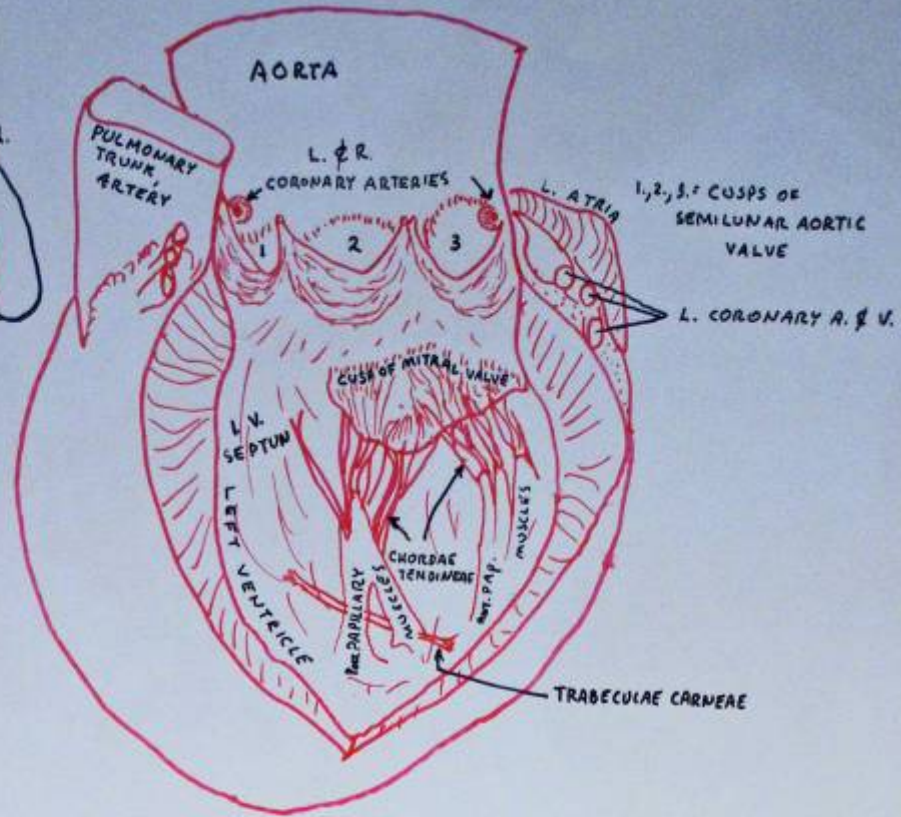 AORTA
R.
PULMONARY
TRUNK,
ARTERY
L. & R.
CORONARY ARTERIES
L. ATRIA
1., 2., 3.: CUSPS OF
SEMILUNAR AORTIC
VALVE
1
2
3
L. CORONARY A. & V.
CUSP OF MITRAL VALVE
L. V.
SEPTUN
LEFT VENTRICLE
CHORDAE
TENDINEAE
POST. PAPILLARY
MUSCLES
ANT. PAP.
MUSCLES
TRABECULAE CARNEAE